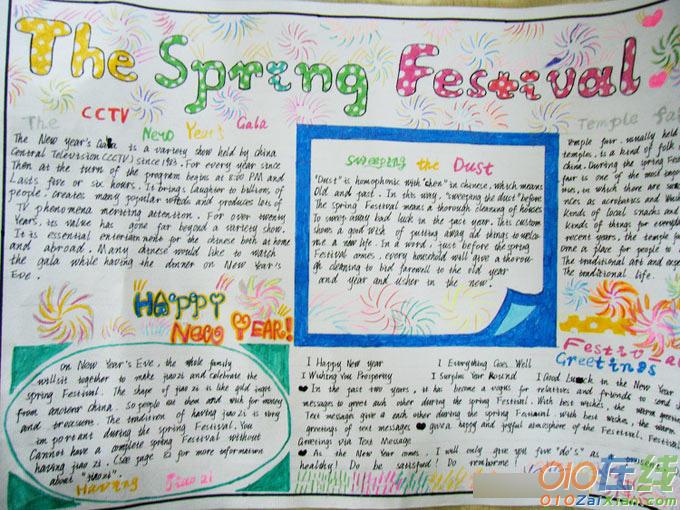 The Spring Festival
The CCTV
New Year's Gala
The New year's Gala is a variety show held by china
Central Television (CCTV) since 1983. For every year since
Then at the turn of the program begins at 8:00 PM and
Lasts five or six hours. It brings laughter to billions of
people, creates many popular words and produces lots of
TV phenomena meriting attention. For over twenty
Years, its value has gone far beyond a variety show.
It is essential entertainment for the chinese both at home
and abroad. Many chinese would like to watch
the gala while having the dinner on New Year's
Eve.
sweeping the Dust
"Dust" is homophonic with "chen" in chinese, which means
Old and past. In this way, "sweeping the dust" before
The spring Festival means a thorough cleaning of houses
To sweep away bad luck in the past year. This custom
shows a good wish of putting away old things to welcome
me a new life. In a word, just before the spring
Festival comes, every household will give a thorough
gh cleaning to bid farewell to the old year
and year and usher in the new.
Temple fair
Temple fair, usually held
temples, is a kind of folk
china. During the spring Fes
fair is one of the most impor
in which there are
as acrobatics and
kinds of local snacks and
kinds of things for everyday
recent years, the temple fair
ome a place for people to
The traditional art and
The traditional life.
HAPPY
NEW YEAR!
On New Year's Eve, the whole family
will sit together to make jiaozi and celebrate the
spring Festival. The shape of jiao zi is like gold ingot
from ancient china. So people eat them and wish for money
and treasure. The tradition of having jiao zi is very
important during the spring Festival. You
Cannot have a complete spring Festival without
having jiao zi. (see page for more information
about "jiaozi".
Having Jiao zi
Greetings
I Happy New year I Everything Goes Well
I Wishing You Prosperity I Surplus Year I Good Luck in the New Year
In the past two years, it has become a for relatives and friends to send
messages to greet each other during the spring Festival. With best wishes, the warm
Text message give a each other during the spring Festival. With best wishes, the warm
greetings of text messages given a happy and joyful atmosphere of the Festival.
Greetings via Text Message
As the New Year comes, I will only give you five "do's" as
healthy! Do be satisfied! Do
010在线
010ZaiXian.com